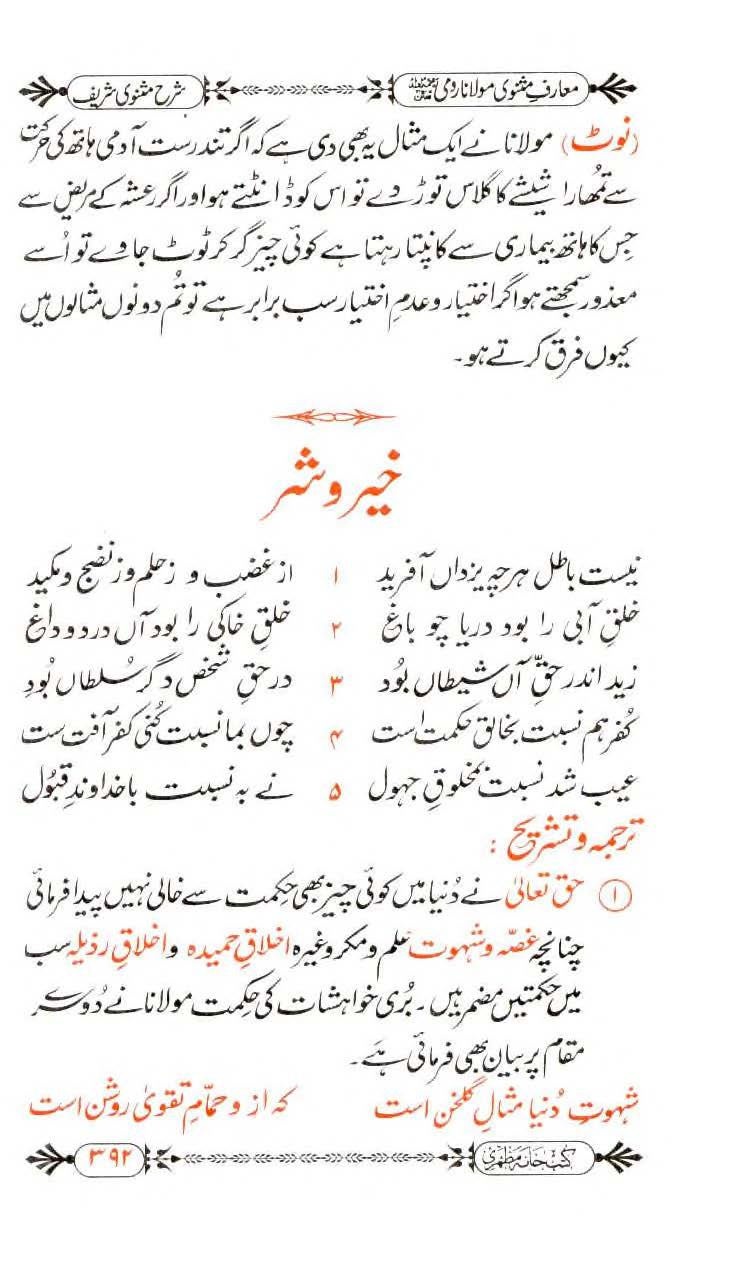 معارفِ مثنوی مولانا رومی شرح مثنوی شریف
(نوٹ) مولانا نے ایک مثال یہ بھی دی ہے کہ اگر تندرست آدمی ہاتھ کی حرکت
سے تمُھارا شیشے کا گلاس توڑ دے تو اس کو ڈانٹتے ہو اور اگر رعشہ کے مریض سے
جِس کا ہاتھ بیماری سے کانپتا رہتا ہے کوئی چیز گر کر ٹوٹ جاوے تو اُسے
معذور سمجھتے ہو اگر اختیار و عدمِ اختیار سب برابر ہے تو تُم دونوں مثالوں میں
کیوں فرق کرتے ہو۔
خیر و شر
نیست باطل ہرچہ یزداں آفرید ۱ از غضب و ز حلم وز نضج و مکید
خلقِ آبی را بود دریا چو باغ ۲ خلقِ خاکی را بود آں درد و داغ
زید اندر حقِّ آں شیطاں بوُد ۳ در حقِ شخص دگر سُلطاں بُود
کُفر ہم نسبت بخالق حکمت است ۴ چوں بما نسبت کُنی کفر آفت ست
عیب شد نسبت بمخلوقِ جہول ۵ نے بہ نسبت با خداوندِ قبُول
ترجمہ و تشریح :
۱ حق تعالیٰ نے دُنیا میں کوئی چیز بھی حِکمت سے خالی نہیں پیدا فرمائی
چنانچہ غصّہ و شہوت علم و مکر وغیرہ اخلاقِ حمیدہ و اخلاقِ رذیلہ سب
میں حکمتیں مضمر ہیں۔ بُری خواہشات کی حِکمت مولانا نے دُوسرے
مقام پر بیان بھی فرمائی ہَے۔
شہوتِ دُنیا مثالِ گلخن است کہ از و حمّامِ تقویٰ روشن است
کتب خانہ مظہری ۳۹۲